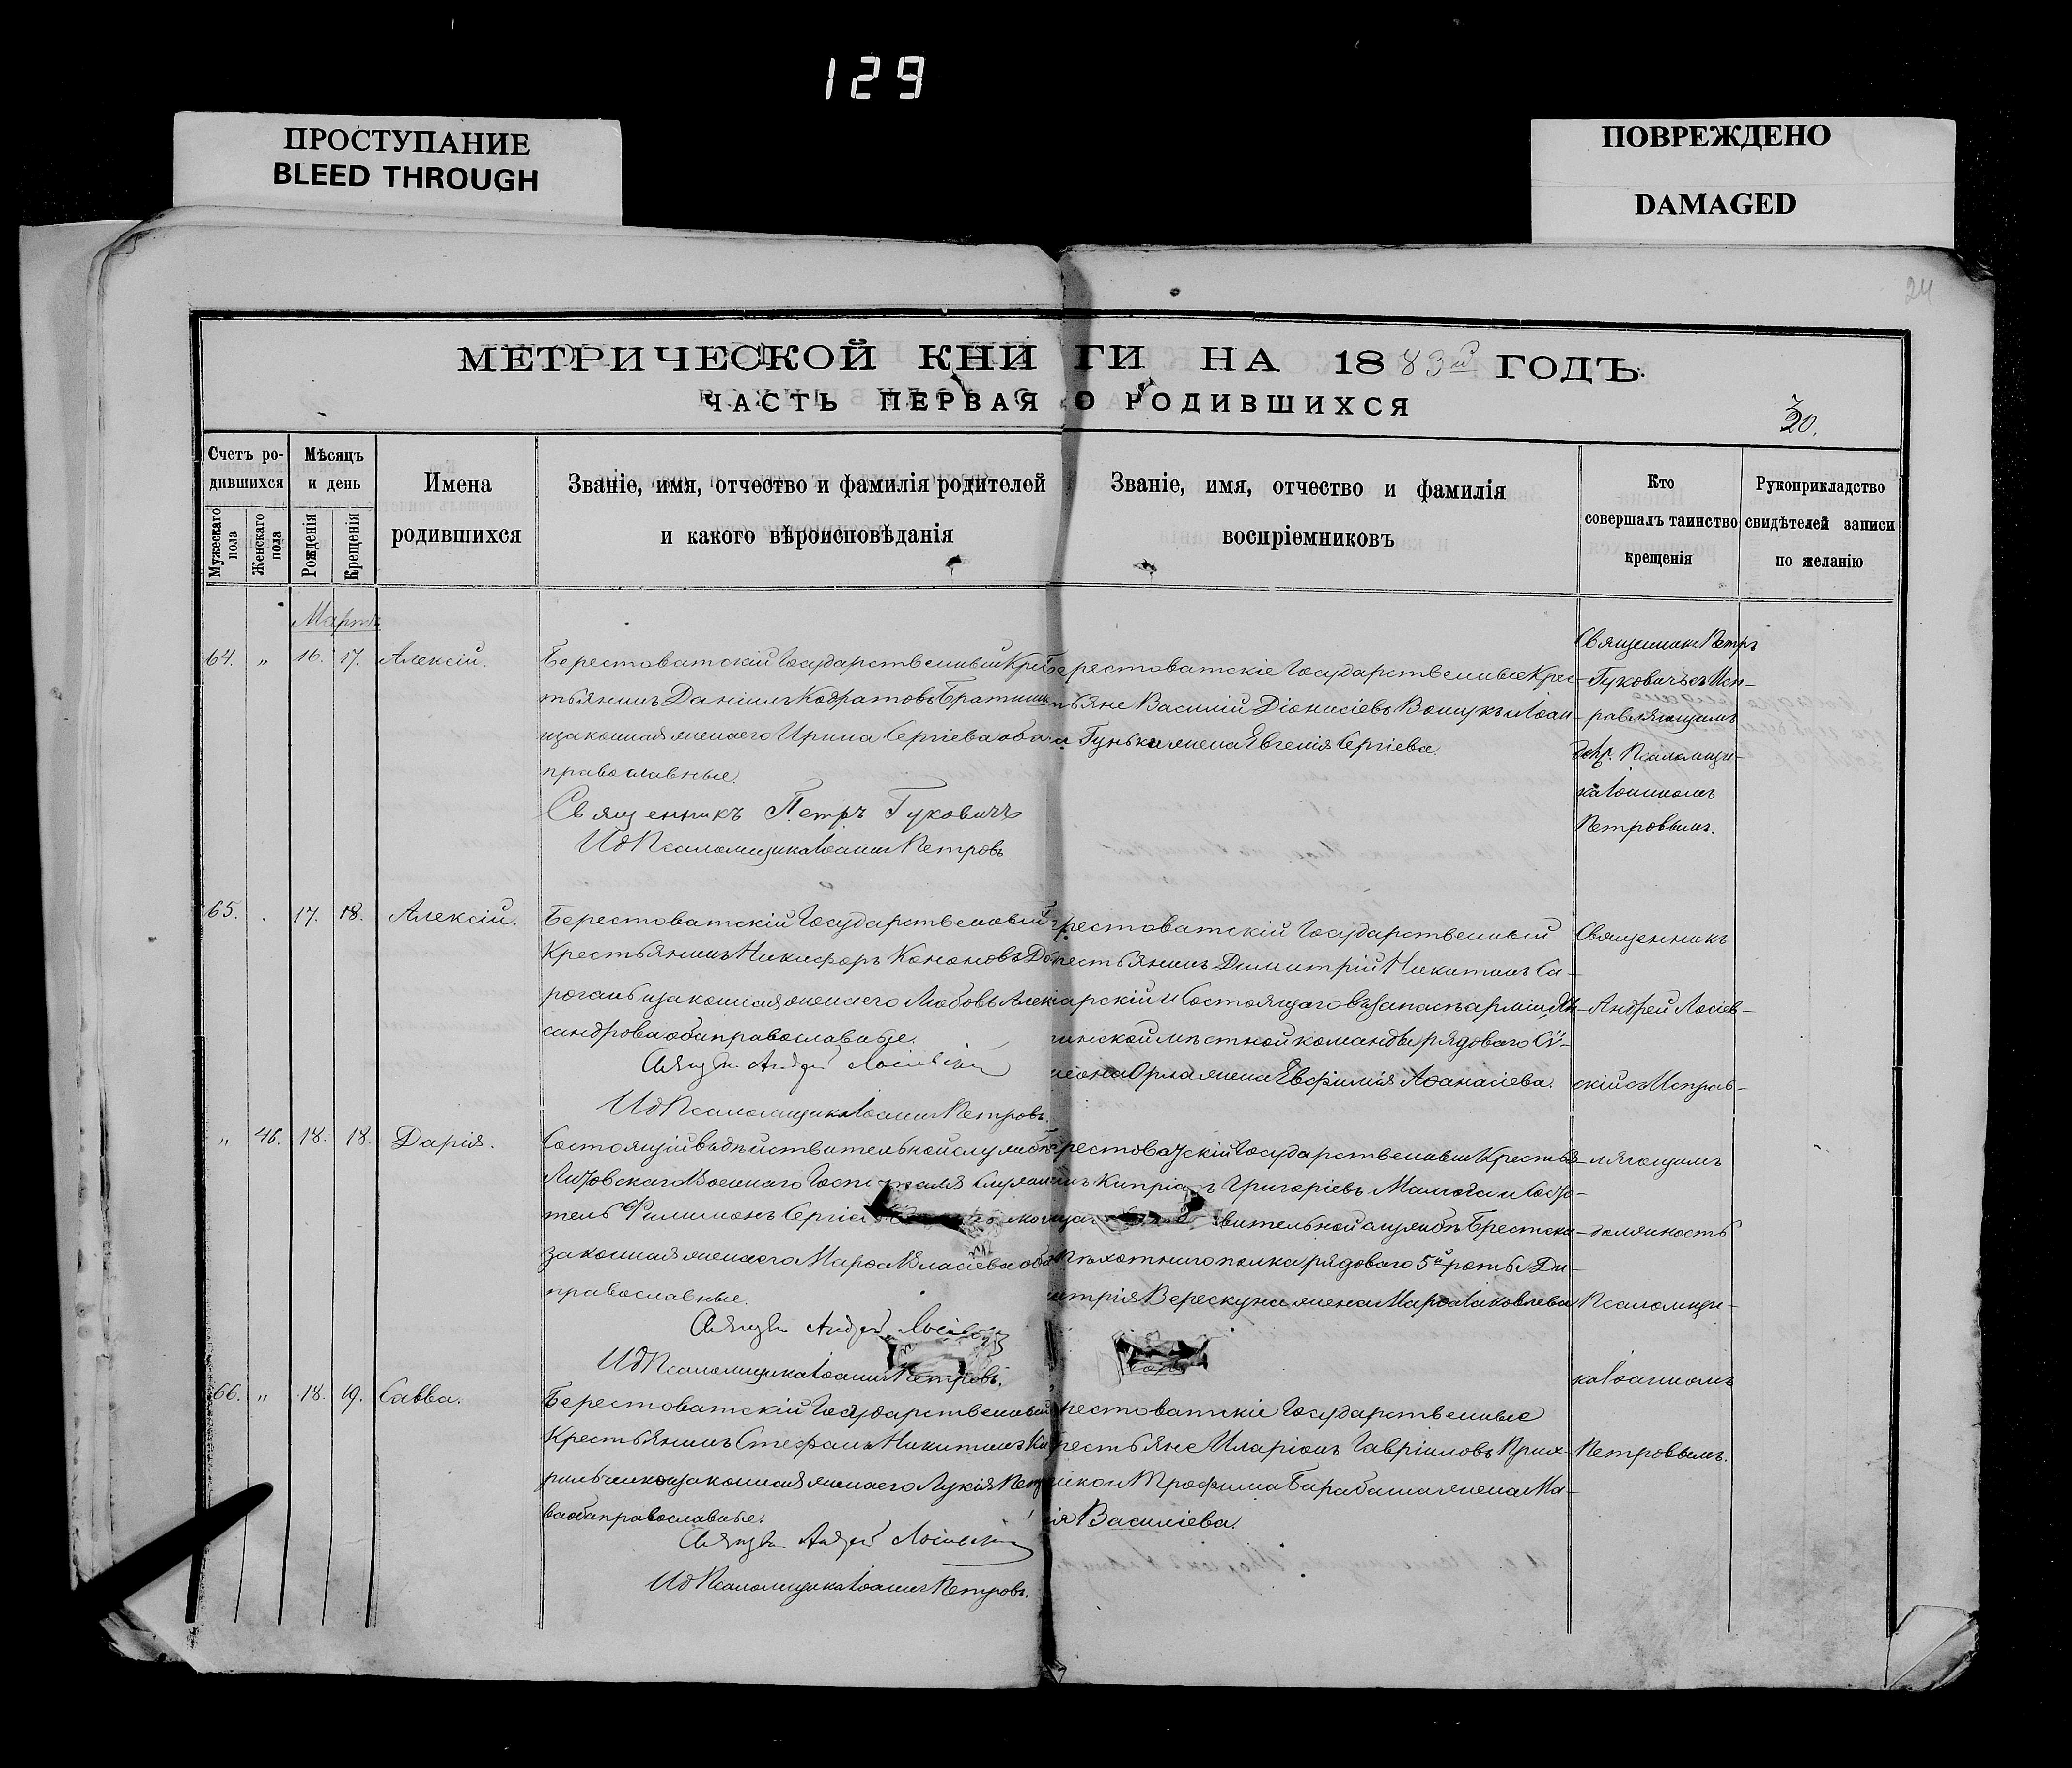 129
ПРОСТУПАНИЕ
BLEED THROUGH
ПОВРЕЖДЕНО
DAMAGED
24
МЕТРИЧЕСКОЙ КНИГИ НА 1883й ГОДЪ.
ЧАСТЬ ПЕРВАЯ О РОДИВШИХСЯ
20.
Счетъ родившихся
Мужескаго пола
Женскаго пола
Мѣсяцъ и день
Рожденія
Крещенія
Имена родившихся
Званіе, имя, отчество и фамилія родителей
и какого вѣроисповѣданія
Званіе, имя, отчество и фамилія
воспріемниковъ
Кто
совершалъ таинство
крещенія
Рукоприкладство
свидѣтелей записи
по желанію
Мартъ
64. „ 16. 17. Алексій.
Берестоватскій Государственный Крес
тьянинъ Даніилъ Кодратовъ
и законная жена его Ирина Сергіева оба
православные.
Священникъ Петръ Гуковичъ
Ид Псаломщика Іоаннъ Петровъ
Берестоватскіе Государственные Крес-
тьяне Василій Діонисіевъ и Іоан-
а Гунька жена Евгенія Сергіева.
Священникъ Петръ
Гуковичъ съ Исп-
равляющимъ
Псаломщи-
ка Іоанномъ
Петровымъ.
65. 17. 18. Алексій.
Берестоватскій Государственный
Крестьянинъ Никифоръ Кононовъ До
рогань и законная жена его Любовь Алек
сандрова оба православные.
Священ. Андрей Лосіевскій
Ид Псаломщика Іоаннъ Петровъ.
рестоватскій Государственный
рестьянинъ Димитрій Никитинъ Са-
арскій и Состоящаго въ запасѣ арміи
инской мѣстной команды рядового Сѵ-
меона Орла жена Евфимія Аѳанасіева.
Священникъ
Андрей Лосіев-
скій съ Исправ-
„ 46. 18. 18. Дарія.
Состоящій въ дѣйствительной службѣ
Военнаго Госпиталя Служи
тель Филимонъ Сергіев
законная жена его Марѳа Власіева оба
православные.
Священ. Андрей Лосіевскій
Ид Псаломщика Іоаннъ Петровъ.
рестоватскій Государственный Крестья-
инъ Кипріанъ Григоріевъ и Состо-
вительной службѣ Брестска
Пѣхотнаго полка рядового 5й роты Ди-
митрія Верескуна жена Марѳа Іаковлева
ляющимъ
должность
Псаломщи-
ка Іоанномъ
66. „ 18. 19. Савва.
Берестоватскій Государственный
Крестьянинъ Стефанъ Никитинъ Ки
рильченко и законная жена его Лукія Петро
ва оба православные.
Священ. Андрей Лосіевскій
Ид Псаломщика Іоаннъ Петровъ.
рестоватскіе Государственные
рестьяне Иларіонъ Гавріиловъ Прих-
дько и Трофима Барабаша жена Ма-
ія Василіева.
Петровымъ.